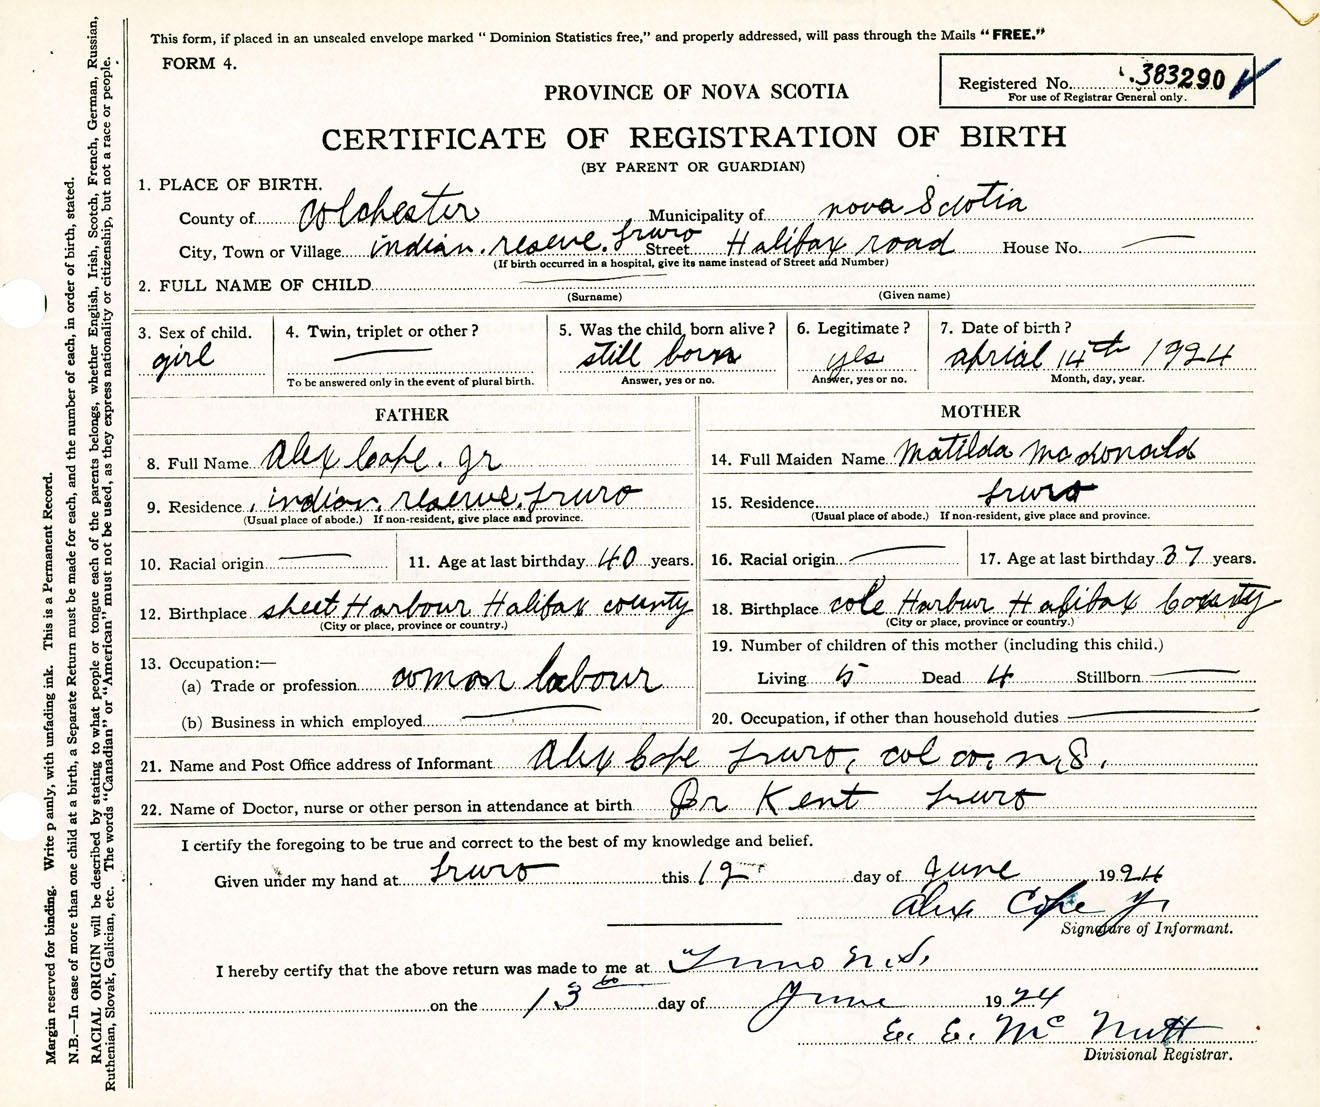 This form, if placed in an unsealed envelope marked "Dominion Statistics free," and properly addressed, will pass through the Mails "FREE."
FORM 4.
Registered No. 383290
For use of Registrar General only.
PROVINCE OF NOVA SCOTIA
CERTIFICATE OF REGISTRATION OF BIRTH
(BY PARENT OR GUARDIAN)
1. PLACE OF BIRTH.
County of Colchester Municipality of nova Scotia
City, Town or Village indian. reserve. Truro Street Halifax road House No. —
(If birth occurred in a hospital, give its name instead of Street and Number)
2. FULL NAME OF CHILD —
(Surname) (Given name)
3. Sex of child. 4. Twin, triplet or other? 5. Was the child born alive? 6. Legitimate? 7. Date of birth?
girl — still born yes aprial 14th 1924
To be answered only in the event of plural birth. Answer, yes or no. Answer, yes or no. Month, day, year.
FATHER MOTHER
8. Full Name Alex Cope. Jr 14. Full Maiden Name Matilda Mcdonald
9. Residence indian. reserve. Truro 15. Residence Truro
(Usual place of abode.) If non-resident, give place and province. (Usual place of abode.) If non-resident, give place and province.
10. Racial origin — 11. Age at last birthday 40 years. 16. Racial origin — 17. Age at last birthday 37 years.
12. Birthplace sheet Harbour Halifax county 18. Birthplace cole Harbur Halifax County
(City or place, province or country.) (City or place, province or country.)
13. Occupation:— 19. Number of children of this mother (including this child.)
(a) Trade or profession comon labour Living 5 Dead 4 Stillborn —
(b) Business in which employed — 20. Occupation, if other than household duties —
21. Name and Post Office address of Informant Alex Cope Truro, col co. n.S.
22. Name of Doctor, nurse or other person in attendance at birth Dr Kent Truro
I certify the foregoing to be true and correct to the best of my knowledge and belief.
Given under my hand at Truro this 12 day of June 1924
Alex Cope Jr
Signature of Informant.
I hereby certify that the above return was made to me at Truro N.S.
on the 13th day of June 1924
E. E. McNutt
Divisional Registrar.
Margin reserved for binding. Write planly, with unfading ink. This is a Permanent Record.
N.B.—In case of more than one child at a birth, a Separate Return must be made for each, and the number of each, in order of birth, stated.
RACIAL ORIGIN will be described by stating to what people or tongue each of the parents belongs, whether English, Irish, Scotch, French, German, Russian,
Ruthenian, Slovak, Galician, etc. The words "Canadian" or "American" must not be used, as they express nationality or citizenship, but not a race or people.